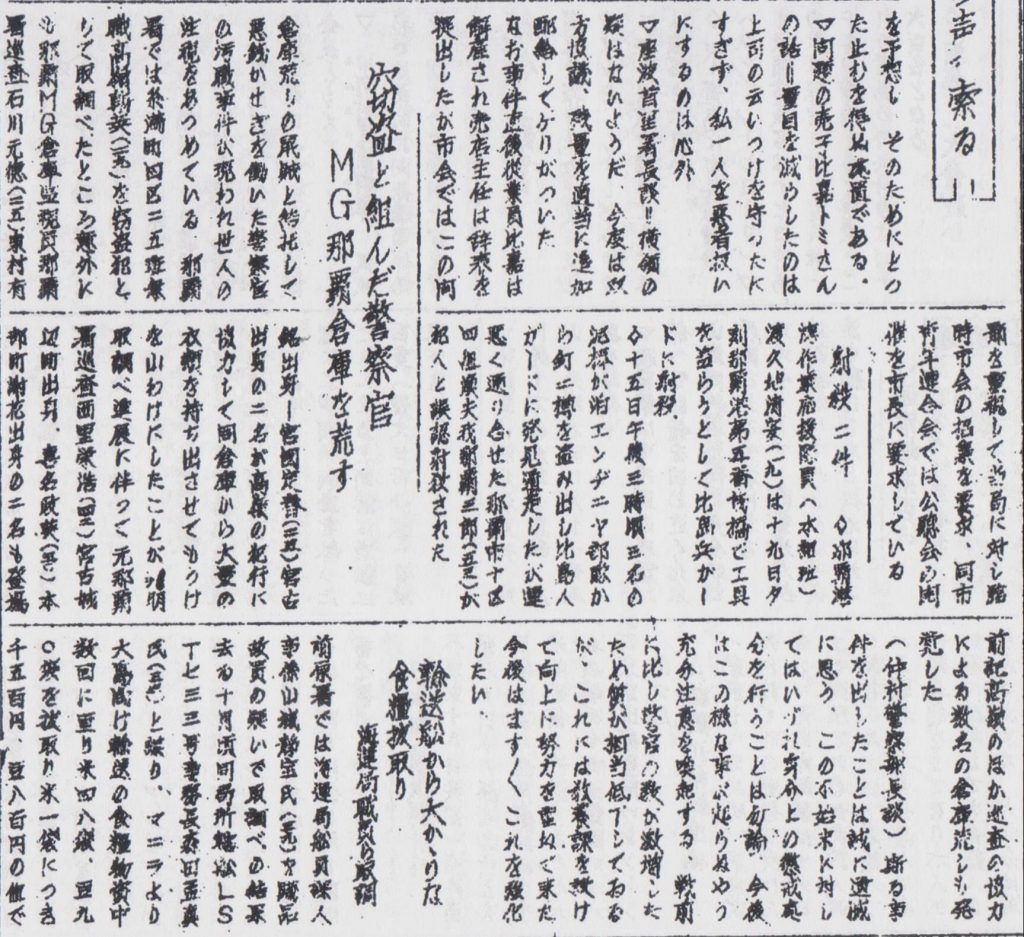 声々索る!!
を予想し そのためにとつ
た止むを得ぬ処置である。
▽問題の売子比嘉トミさん
の話ー量目を減らしたのは
上司の云いつけを守つたに
すぎず、私一人を悪者扱い
にするのは心外
▽座波首里署長談!!横領の
疑はないようだ、今度は双
方協議、残量を適当に追加
配給してケリがついた
なお事件直後従業員比嘉は
解雇され売店主任は辞表を
提出したが市会ではこの問
題を重視して当局に対し臨
時市会の招集を要求、同市
青年連合会では公聴会の開
催を市長に要求している
射殺二件 ◇那覇港
湾作業応援隊員(水和班)
渡久地清安(一九)は十九日夕
刻那覇港第五番桟橋で工具
を盗もうとして比島兵ガー
ドに射殺
◇十五日午後三時頃三名の
泥棒が泊エンヂニヤ部隊か
ら釘二樽を盗み出し比島人
ガードに発見逃走したが運
悪く通り合せた那覇市十区
四組 我那覇三郎 が
犯人と誤認射殺された
穴切盗と組んだ警察官
MG那覇倉庫を荒す
倉庫荒しの泥賊と結托して
悪銭かせぎを働いた警察官
の汚職事件が現われ世人の
注視をあつめている 那覇
署では糸満町四区二五班無
職高嶺 を窃盗犯と
して取調べたところ意外に
も那覇MG倉庫監視員那覇
署巡査石川元徳(二五)東村有
銘出身ー宮國定 (二五)宮古
出身の二名が高嶺の犯行に
協力して同倉庫から大量の
衣類を持ち出させてもうけ
を山わけにしたことが判明
取調べ進展に伴つて元那覇
署巡査西里栄浩 宮古城
辺町出身、喜名政 本
部町謝花出身の二名も登場
前記高嶺のほか巡査の協力
による数名の倉庫荒しも発
覚した
(仲村警察部長談) 斯る事
件を出したことは誠に遺憾
に思う、この不始末に対し
てはいづれ身分上の懲戒処
分を行うことは勿論 今後
はこの様な事が起らぬやう
充分注意を喚起する 戦前
に比し警官の数が激増した
ため質が相当低下しておる
が、これには教養課を設け
て向上に努力を重ねて来た
今後はます〱これを強化
したい
輸送船から大がゝりな
食糧抜取り
海運局職員ら取調
前原署では海運局船員課人
事係山城静宝氏 を贓品
故買の疑いで取調べの結果
去る十月頃同局所轄船LS
T七三三号事務長森田正真
氏 と謀り、マニラより
大島向け輸送の食糧物資中
数回に亘り米四八袋、豆九
〇袋を抜取り米一袋につき
千五百円、豆八百円の値で